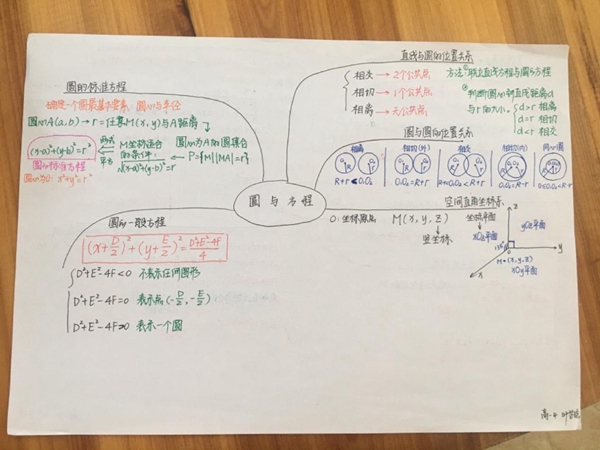 圆的标准方程
确定一个圆最基本要素：圆心与半径
圆心A(a,b)→r=任意M(x,y)与A距离
(x-a)²+(y-b)²=r²
两边
平方
M坐标适合
的条件：
√(x-a)²+(y-b)²=r
圆心为A的圆集合
P={M||MA|=r}
圆的标准方程
圆心为0：x²+y²=r²
圆的一般方程
(x+D/2)²+(y+E/2)²=D²+E²-4F/4
D²+E²-4F<0 不表示任何图形
D²+E²-4F=0 表示点(-D/2,-E/2)
D²+E²-4F>0 表示一个圆
圆与方程
直线与圆的位置关系
相交→2个公共点
相切→1个公共点
相离→无公共点
方法①联立直线方程与圆的方程
②判断圆心到直线距离d
与r的大小
d>r 相离
d=r 相切
d<r 相交
圆与圆的位置关系
相离
R+r<O₁O₂
相切(外)
O₁O₂=R+r
相交
相切(内)
O₁O₂=R-r
空间直角坐标系
O：坐标原点
M(x,y,z)
竖坐标
坐标平面
xOz平面
yOz平面
xOy平面
M•(x,y,z)
135°
z
y
x
O